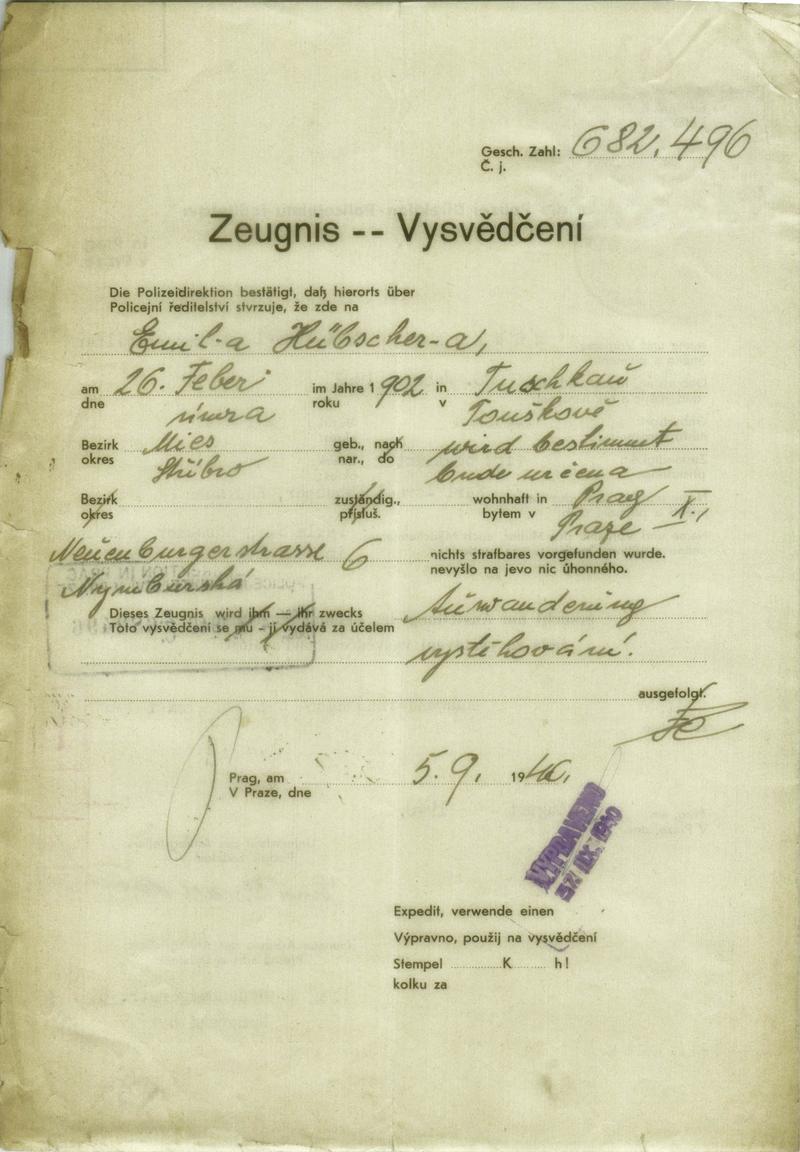 Gesch. Zahl: 682.496
Č. j.
Zeugnis -- Vysvědčení
Die Polizeidirektion bestätigt, daß hierorts über
Policejní ředitelství stvrzuje, že zde na
Emil-a Hübscher-a,
am 26. Feber im Jahre 1902 in Tuschkau
dne února roku v Touškově
Bezirk Mies geb., nach wird bestimmt
okres Stříbro nar., do bude určena
Bezirk zuständig., wohnhaft in Prag
okres přísluš. bytem v Praze X.,
Neuenburgerstrasse 6 nichts strafbares vorgefunden wurde.
Nymburská nevyšlo na jevo nic úhonného.
Dieses Zeugnis wird ihm — ihr zwecks Auswanderung
Toto vysvědčení se mu - jí vydává za účelem
vystěhování.
ausgefolgt.
Prag, am 5.9. 1940.
V Praze, dne
VYPRAVENO
IX. 1940
Expedit, verwende einen
Výpravno, použij na vysvědčení
Stempel K h!
kolku za